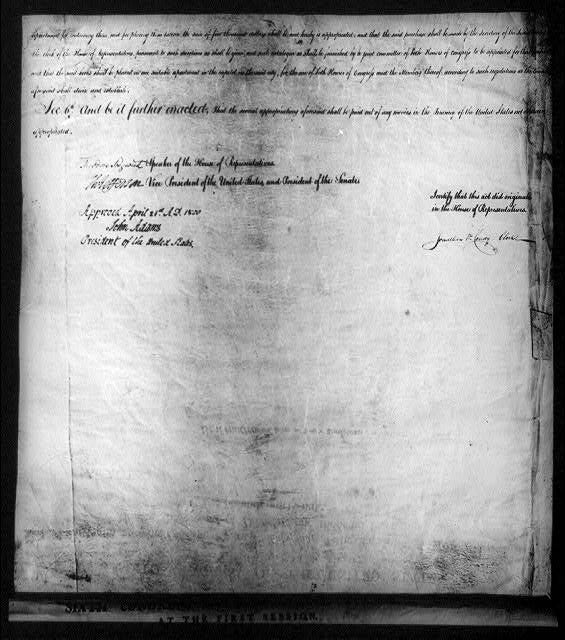 apartment for containing them and for placing them therein the sum of five thousand dollars shall be and hereby is appropriated; and that the said purchase shall be made by the Secretary of the Senate
the clerk of the House of representatives, pursuant to such directions as shall be given, and such catalogue as shall be furnished by a joint committee of both Houses of Congress to be appointed for that
and that the said books shall be placed in one suitable apartment in the capitol in the said city, for the use of both Houses of Congress and the Members thereof, according to such regulations as the
aforesaid shall devise and establish.
Sec 6. And be it further enacted, That the several appropriations aforesaid shall be paid out of any monies in the Treasury of the United States not
appropriated.
Speaker of the House of Representatives.
Th Jefferson Vice President of the United States, and President of the Senate
Approved April 24th A.D. 1800
John Adams
President of the United States
I certify that this act did originate
in the House of Representatives.
Jonathan W Condy Clerk
SIXTH
AT THE FIRST SESSION,